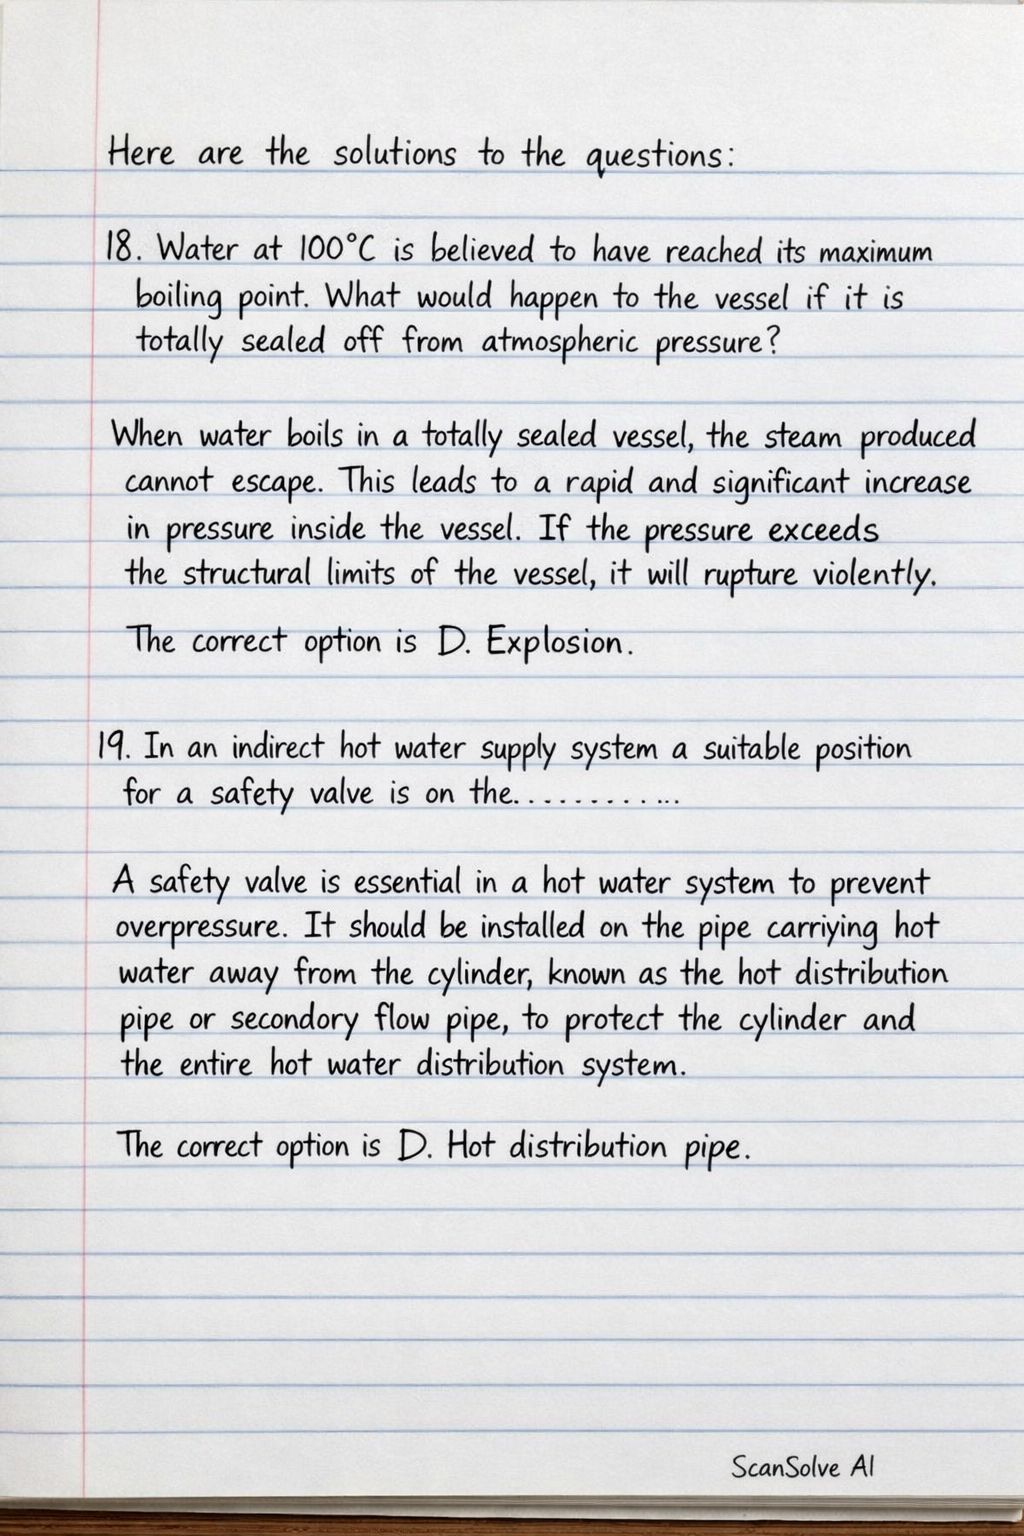 Here are the solutions to the questions:
18. Water at 100°C is believed to have reached its maximum
boiling point. What would happen to the vessel if it is
totally sealed off from atmospheric pressure?
When water boils in a totally sealed vessel, the steam produced
cannot escape. This leads to a rapid and significant increase
in pressure inside the vessel. If the pressure exceeds
the structural limits of the vessel, it will rupture violently.
The correct option is D. Explosion.
19. In an indirect hot water supply system a suitable position
for a safety valve is on the.............
A safety valve is essential in a hot water system to prevent
overpressure. It should be installed on the pipe carriying hot
water away from the cylinder, known as the hot distribution
pipe or secondory flow pipe, to protect the cylinder and
the entire hot water distribution system.
The correct option is D. Hot distribution pipe.
ScanSolve AI